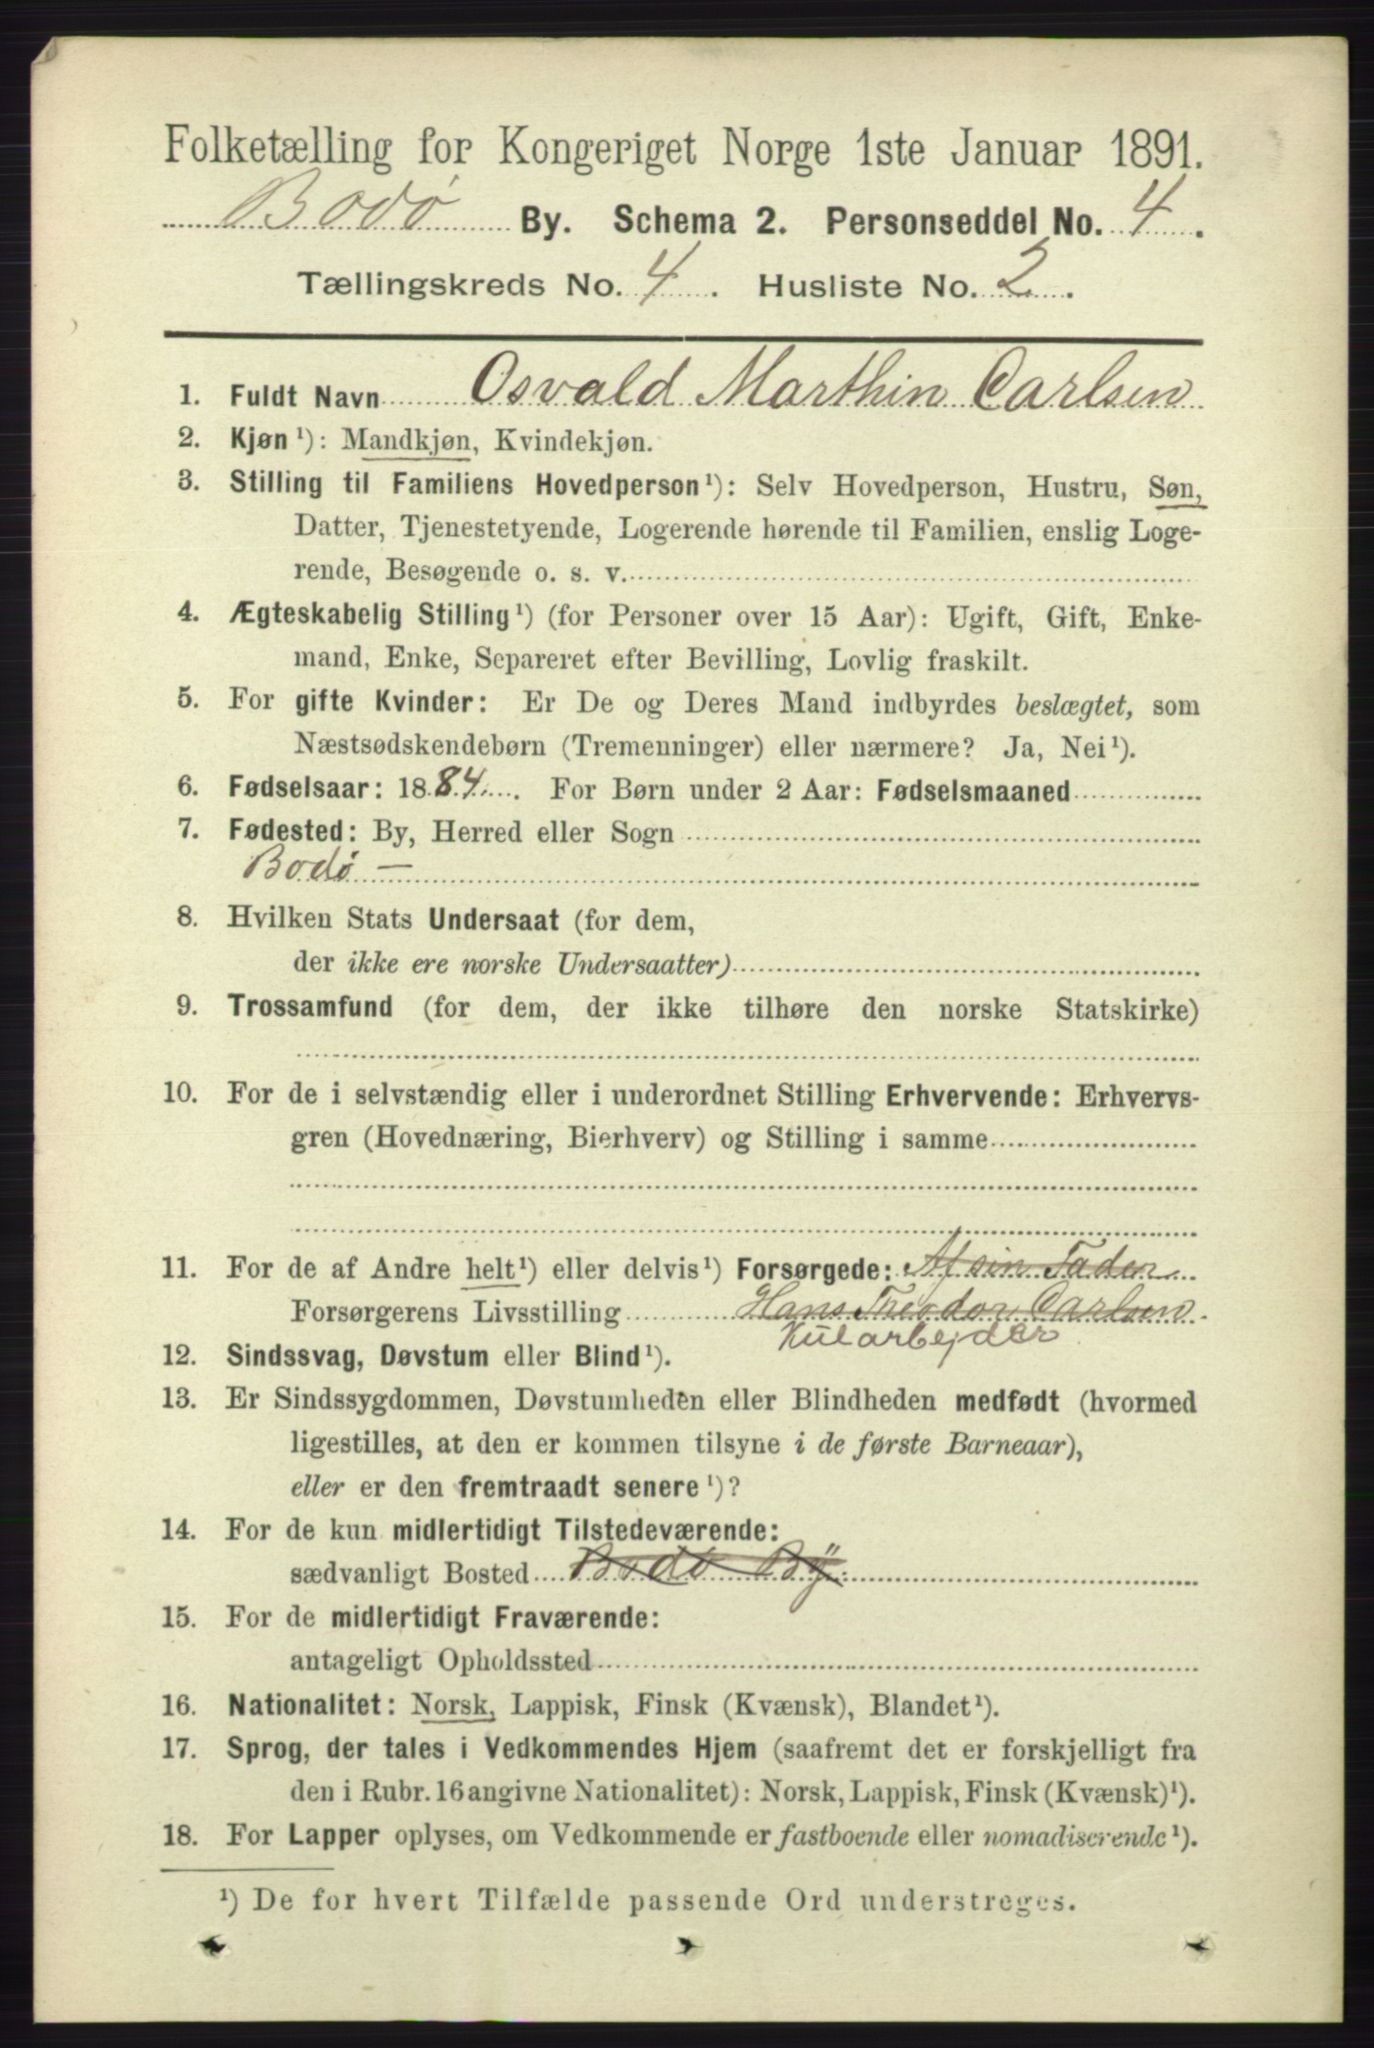 Folketælling for Kongeriget Norge 1ste Januar 1891.
Bodø By. Schema 2. Personseddel No. 4.
Tællingskreds No. 4. Husliste No. 2.
1. Fuldt Navn Osvald Marthin Carlsen
2. Kjøn¹): Mandkjøn, Kvindekjøn.
3. Stilling til Familiens Hovedperson¹): Selv Hovedperson, Hustru, Søn,
Datter, Tjenestetyende, Logerende hørende til Familien, enslig Loge-
rende, Besøgende o. s. v.
4. Ægteskabelig Stilling¹) (for Personer over 15 Aar): Ugift, Gift, Enke-
mand, Enke, Separeret efter Bevilling, Lovlig fraskilt.
5. For gifte Kvinder: Er De og Deres Mand indbyrdes beslægtet, som
Næstsødskendebørn (Tremenninger) eller nærmere? Ja, Nei¹).
6. Fødselsaar: 1884. For Børn under 2 Aar: Fødselsmaaned
7. Fødested: By, Herred eller Sogn
Bodø —
8. Hvilken Stats Undersaat (for dem,
der ikke ere norske Undersaatter)
9. Trossamfund (for dem, der ikke tilhøre den norske Statskirke)
10. For de i selvstændig eller i underordnet Stilling Erhvervende: Erhvervs-
gren (Hovednæring, Bierhverv) og Stilling i samme
11. For de af Andre helt¹) eller delvis¹) Forsørgede: Af sin Fader
Forsørgerens Livsstilling Hans Theodor Carlsen
Kularbejder
12. Sindssvag, Døvstum eller Blind¹).
13. Er Sindssygdommen, Døvstumheden eller Blindheden medfødt (hvormed
ligestilles, at den er kommen tilsyne i de første Barneaar),
eller er den fremtraadt senere¹)?
14. For de kun midlertidigt Tilstedeværende:
sædvanligt Bosted Bodø By
15. For de midlertidigt Fraværende:
antageligt Opholdssted
16. Nationalitet: Norsk, Lappisk, Finsk (Kvænsk), Blandet¹).
17. Sprog, der tales i Vedkommendes Hjem (saafremt det er forskjelligt fra
den i Rubr. 16 angivne Nationalitet): Norsk, Lappisk, Finsk (Kvænsk)¹).
18. For Lapper oplyses, om Vedkommende er fastboende eller nomadiserende¹).
¹) De for hvert Tilfælde passende Ord understreges.